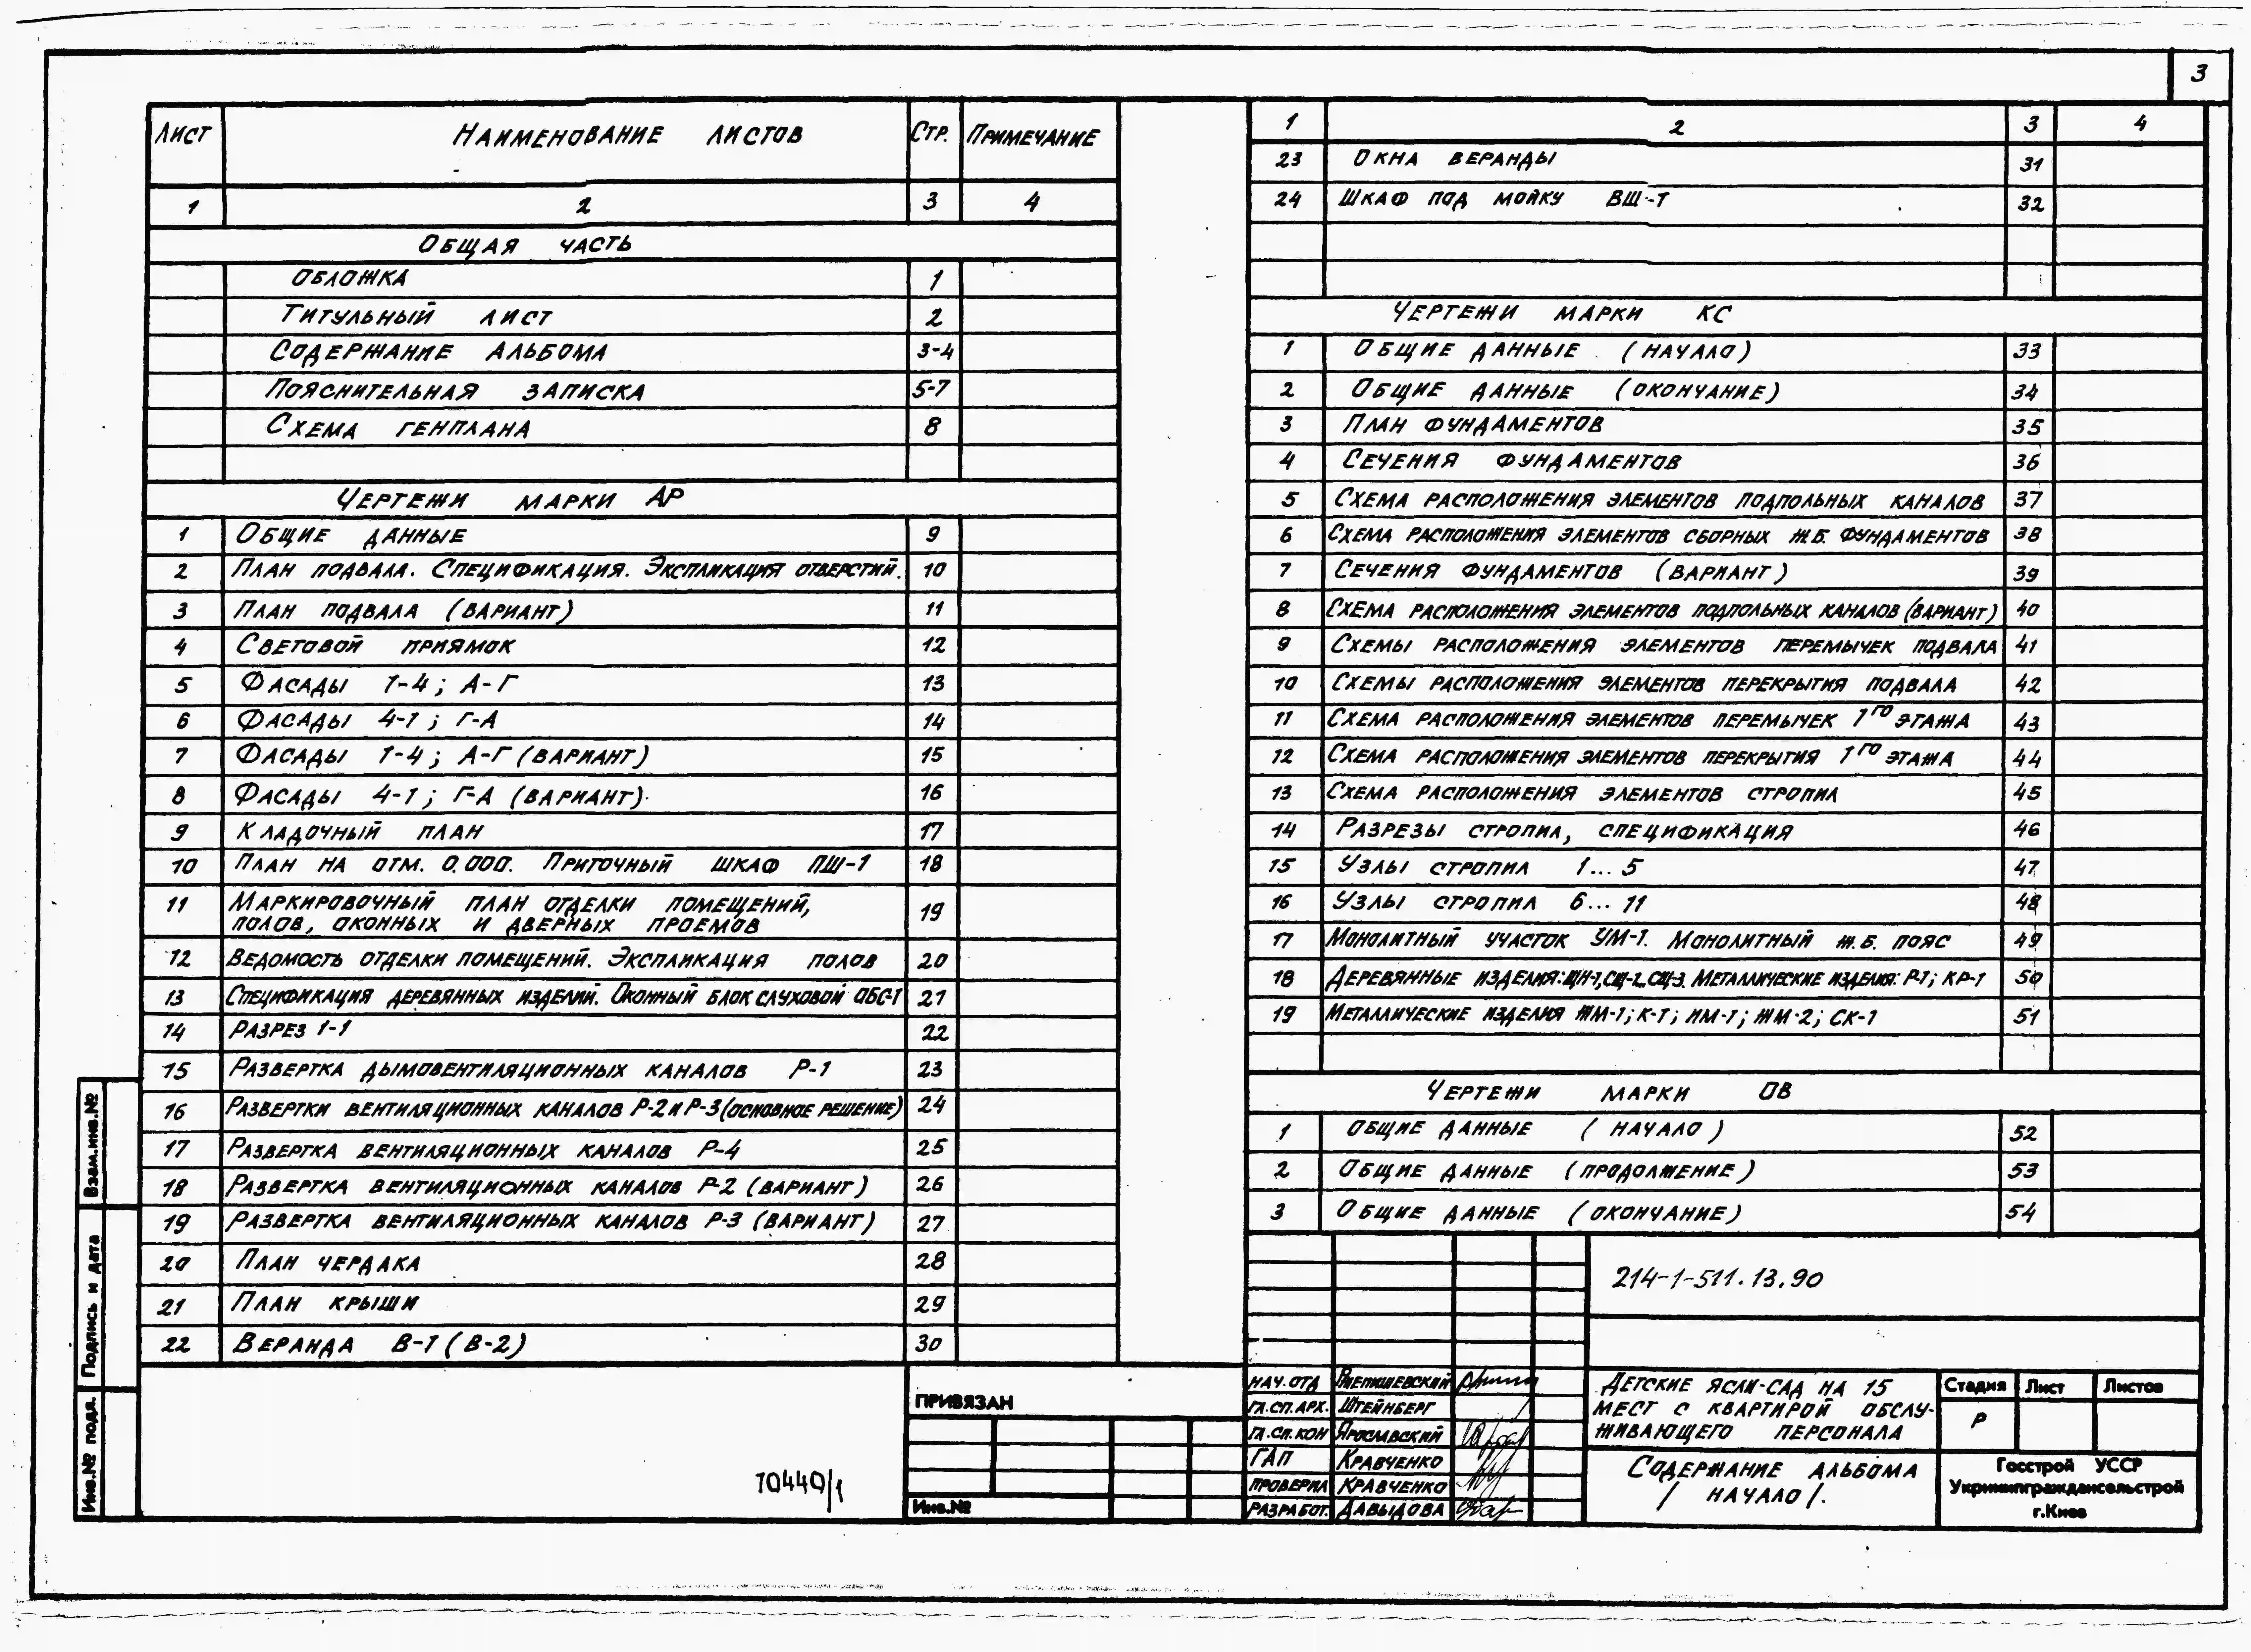 3
Лист Наименование листов Стр. Примечание
1 2 3 4
Общая часть
Обложка 1
Титульный лист 2
Содержание альбома 3-4
Пояснительная записка 5-7
Схема генплана 8
Чертежи марки АР
1 Общие данные 9
2 План подвала. Спецификация. Экспликация отверстий. 10
3 План подвала (вариант) 11
4 Световой приямок 12
5 Фасады 1-4; А-Г 13
6 Фасады 4-1; Г-А 14
7 Фасады 1-4; А-Г (вариант) 15
8 Фасады 4-1; Г-А (вариант). 16
9 Кладочный план 17
10 План на отм. 0.000. Приточный шкаф ПШ-1 18
11 Маркировочный план отделки помещений,
полов, оконных и дверных проемов 19
12 Ведомость отделки помещений. Экспликация полов 20
13 Спецификация деревянных изделий. Оконный блок слуховой ОБС-1 21
14 Разрез 1-1 22
15 Развертка дымовентиляционных каналов Р-1 23
16 Развертки вентиляционных каналов Р-2 и Р-3 (основное решение) 24
17 Развертка вентиляционных каналов Р-4 25
18 Развертка вентиляционных каналов Р-2 (вариант) 26
19 Развертка вентиляционных каналов Р-3 (вариант) 27
20 План чердака 28
21 План крыши 29
22 Веранда В-1 (В-2) 30
1 2 3 4
23 Окна веранды 31
24 Шкаф под мойку ВШ-1 32
Чертежи марки КС
1 Общие данные (начало) 33
2 Общие данные (окончание) 34
3 План фундаментов 35
4 Сечения фундаментов 36
5 Схема расположения элементов подпольных каналов 37
6 Схема расположения элементов сборных ж.б. фундаментов 38
7 Сечения фундаментов (вариант) 39
8 Схема расположения элементов подпольных каналов (вариант) 40
9 Схемы расположения элементов перемычек подвала 41
10 Схемы расположения элементов перекрытия подвала 42
11 Схема расположения элементов перемычек 1го этажа 43
12 Схема расположения элементов перекрытия 1го этажа 44
13 Схема расположения элементов стропил 45
14 Разрезы стропил, спецификация 46
15 Узлы стропил 1...5 47
16 Узлы стропил 6...11 48
17 Монолитный участок УМ-1. Монолитный ж.б. пояс 49
18 Деревянные изделия: ЩН-1, СЩ-2, СЩ-3. Металлические изделия: Р-1; КР-1 50
19 Металлические изделия ЖМ-1; К-1; НМ-1; ЖМ-2; СК-1 51
Чертежи марки ОВ
1 Общие данные (начало) 52
2 Общие данные (продолжение) 53
3 Общие данные (окончание) 54
214-1-511.13.90
Нач. отд
Гл.сп.арх. Штейнберг
Гл.сп.кон Ярославский
ГАП Кравченко
Проверил Кравченко
Разработ. Давыдова
Детские ясли-сад на 15
мест с квартирой обслу-
живающего персонала
Стадия Лист Листов
Р
Содержание альбома
/ начало /.
Госстрой УССР
Укрниипграждансельстрой
г.Киев
ПРИВЯЗАН
Инв.№
10440/1
Взам.инв.№
Подпись и дата
Инв.№ подл.